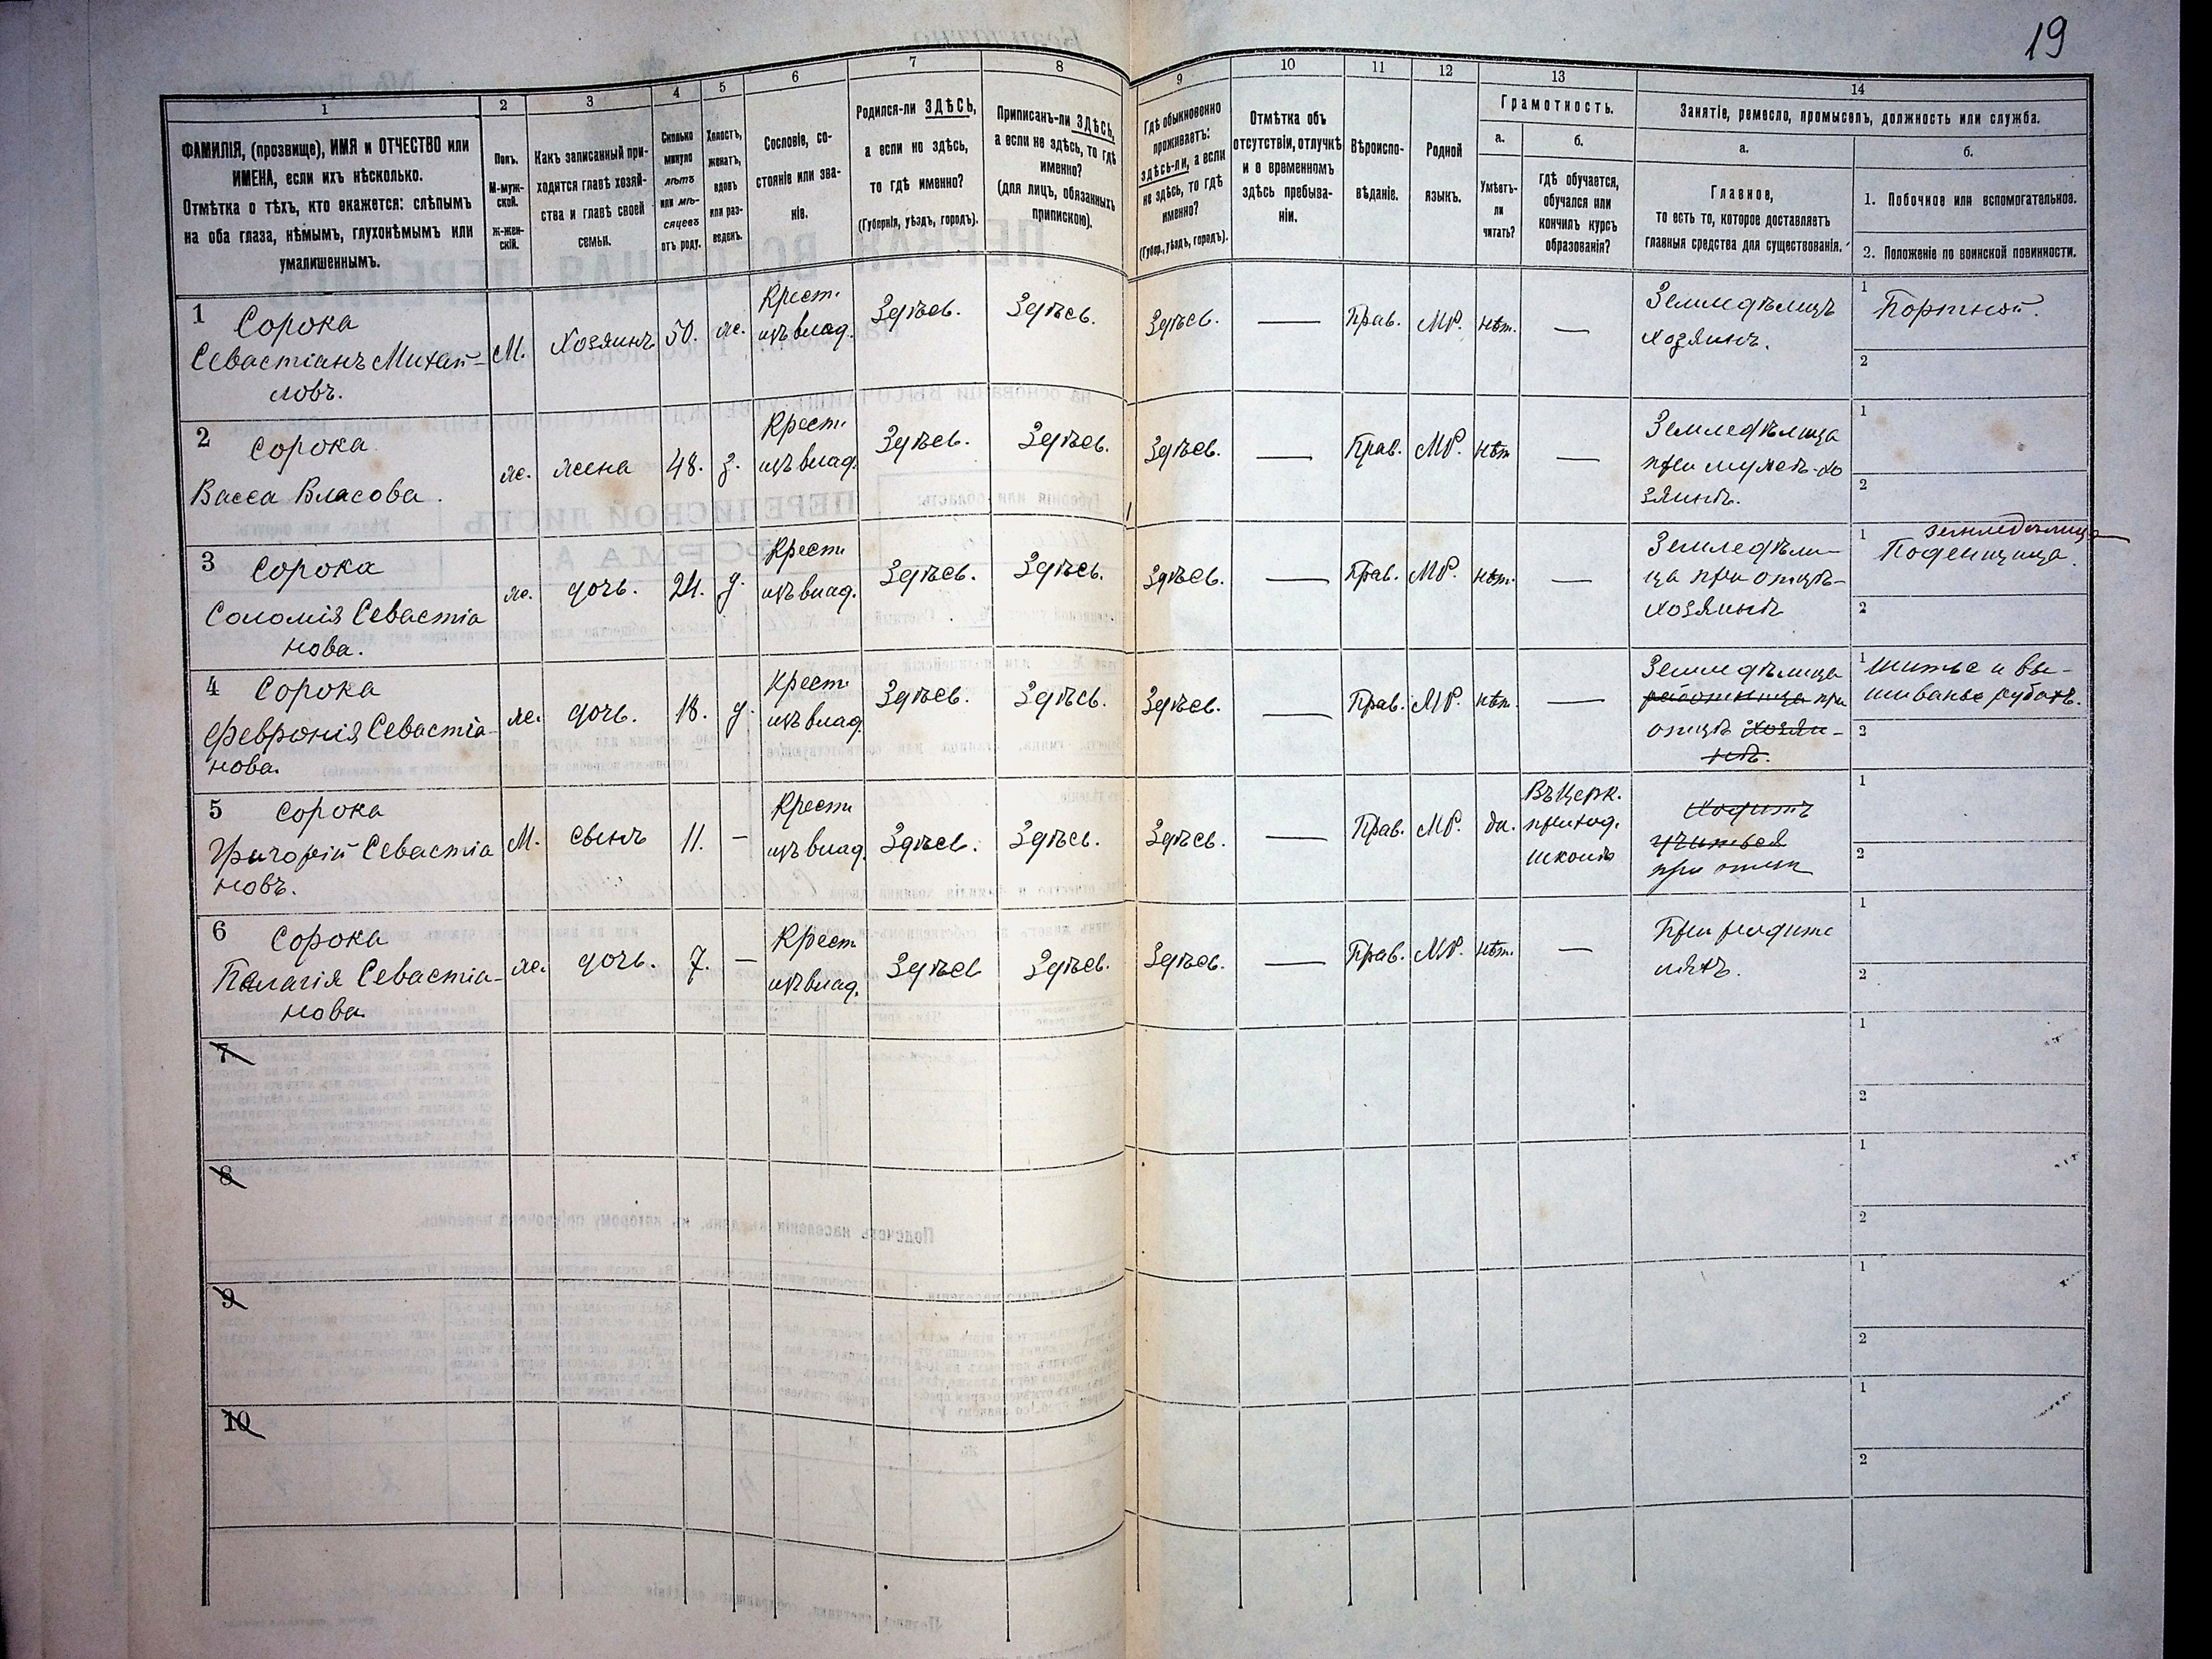 19
1
2
3
4
5
6
7
8
9
10
11
12
13
14
ФАМИЛІЯ, (прозвище), ИМЯ и ОТЧЕСТВО или
ИМЕНА, если ихъ нѣсколько.
Отмѣтка о тѣхъ, кто окажется: слѣпымъ
на оба глаза, нѣмымъ, глухонѣмымъ или
умалишеннымъ.
Полъ.
М-муж-
ской.
Ж-жен-
скій.
Какъ записанный при-
ходится главѣ хозяй-
ства и главѣ своей
семьи.
Сколько
минуло
лѣтъ
или мѣ-
сяцевъ
отъ роду.
Холостъ,
женатъ,
вдовъ
или раз-
веденъ.
Сословіе, со-
стояніе или зва-
ніе.
Родился-ли ЗДѢСЬ,
а если не здѣсь,
то гдѣ именно?
(Губернія, уѣздъ, городъ).
Приписанъ-ли ЗДѢСЬ,
а если не здѣсь, то гдѣ
именно?
(для лицъ, обязанныхъ
припискою).
Гдѣ обыкновенно
проживаетъ:
здѣсь-ли, а если
не здѣсь, то гдѣ
именно?
(Губер., уѣздъ, городъ).
Отмѣтка объ
отсутствіи, отлучкѣ
и о временномъ
здѣсь пребыва-
ніи.
Вѣроиспо-
вѣданіе.
Родной
языкъ.
Грамотность.
а.
б.
Умѣетъ-
ли
читать?
гдѣ обучается,
обучался или
кончилъ курсъ
образованія?
Занятіе, ремесло, промыселъ, должность или служба.
а.
б.
Главное,
то есть то, которое доставляетъ
главныя средства для существованія.
1. Побочное или вспомогательное.
2. Положеніе по воинской повинности.
1 Сорока
Севастіанъ Михай-
ловъ.
М.
Хозяинъ
50.
ж.
Крест.
изъ влад.
Здѣсь.
Здѣсь.
Здѣсь.
—
Прав.
МР.
нѣт.
—
Земледѣлецъ
хозяинъ.
1 Портной.
2
2 Сорока
Васса Власова.
ж.
жена
48.
з.
Крест.
изъ влад.
Здѣсь.
Здѣсь.
Здѣсь.
—
Прав.
МР.
нѣт
—
Земледѣлица
при мужѣ-хо
зяинѣ.
1
2
3 Сорока
Соломія Севастіа
нова.
ж.
дочь.
24.
д.
Крест
изъ влад.
Здѣсь.
Здѣсь.
Здѣсь.
—
Прав.
МР.
нѣт.
—
Земледѣли-
ца при отцѣ-
хозяинѣ
земледѣлица
1 Поденщица.
2
4 Сорока
Февронія Севастіа-
нова.
ж.
дочь.
18.
д.
Крест
изъ влад
Здѣсь.
Здѣсь.
Здѣсь.
—
Прав.
МР.
нѣт.
—
Земледѣлица
работница при
отцѣ хозяи-
нѣ.
1 шитье и вы-
шиванье рубахъ.
2
5 Сорока
Григорій Севастіа
новъ.
М.
сынъ
11.
—
Крест
изъ влад.
Здѣсь.
Здѣсь.
Здѣсь.
—
Прав.
МР.
да.
Въ Церк.
приход.
школѣ
Ходитъ
учиться
при отцѣ
1
2
6 Сорока
Палагія Севастіа-
нова
ж.
дочь.
7.
—
Крест
изъ влад.
Здѣсь
Здѣсь.
Здѣсь.
—
Прав.
МР.
нѣт.
—
При родите
ляхъ.
1
2
7
1
2
8
1
2
9
1
2
10
1
2